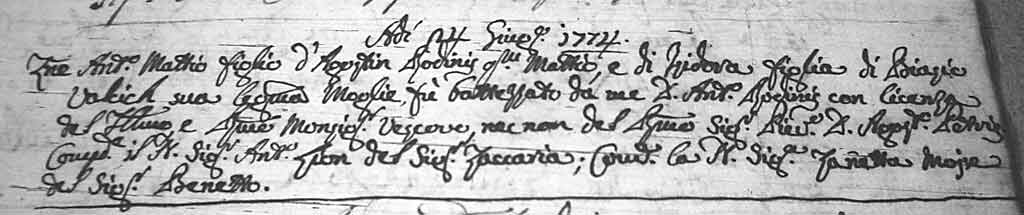 Adi 14 Giug.º 1774.
Zne Ant.º Mattio figlio d'Agostin Sodinis q.m Mattio, e di Isidora figlia di Biasio
Vakich sua leg.ma Moglie, fù battezzato da me D. Ant.º Sodinis con licenza
del Ill.mo, e R.mo Monsig.r Vescovo, nec non del R.mo Sig.r D. Agost.º
Comp.e il N. Sig.r Ant.º del Sig.r Zaccaria; Com.e la N. Sig.ra Zanetta Moje
del Sig.r Benetto.